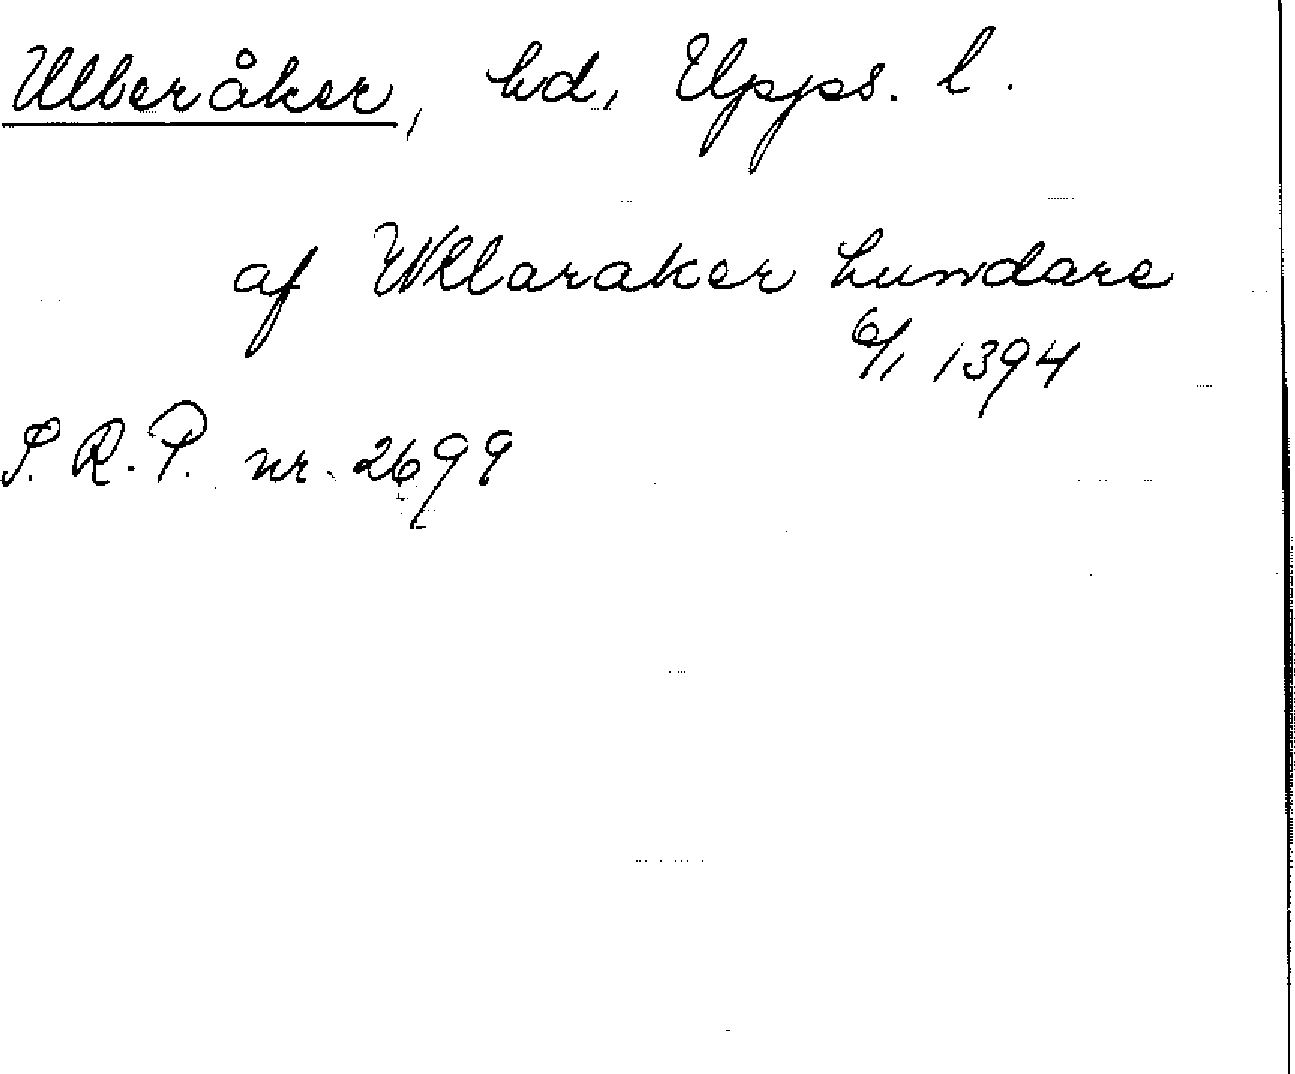 Ulleråker, hd, Upps. l.
af Wllaraker hundare
6/1 1394
S.R.P. nr. 2699